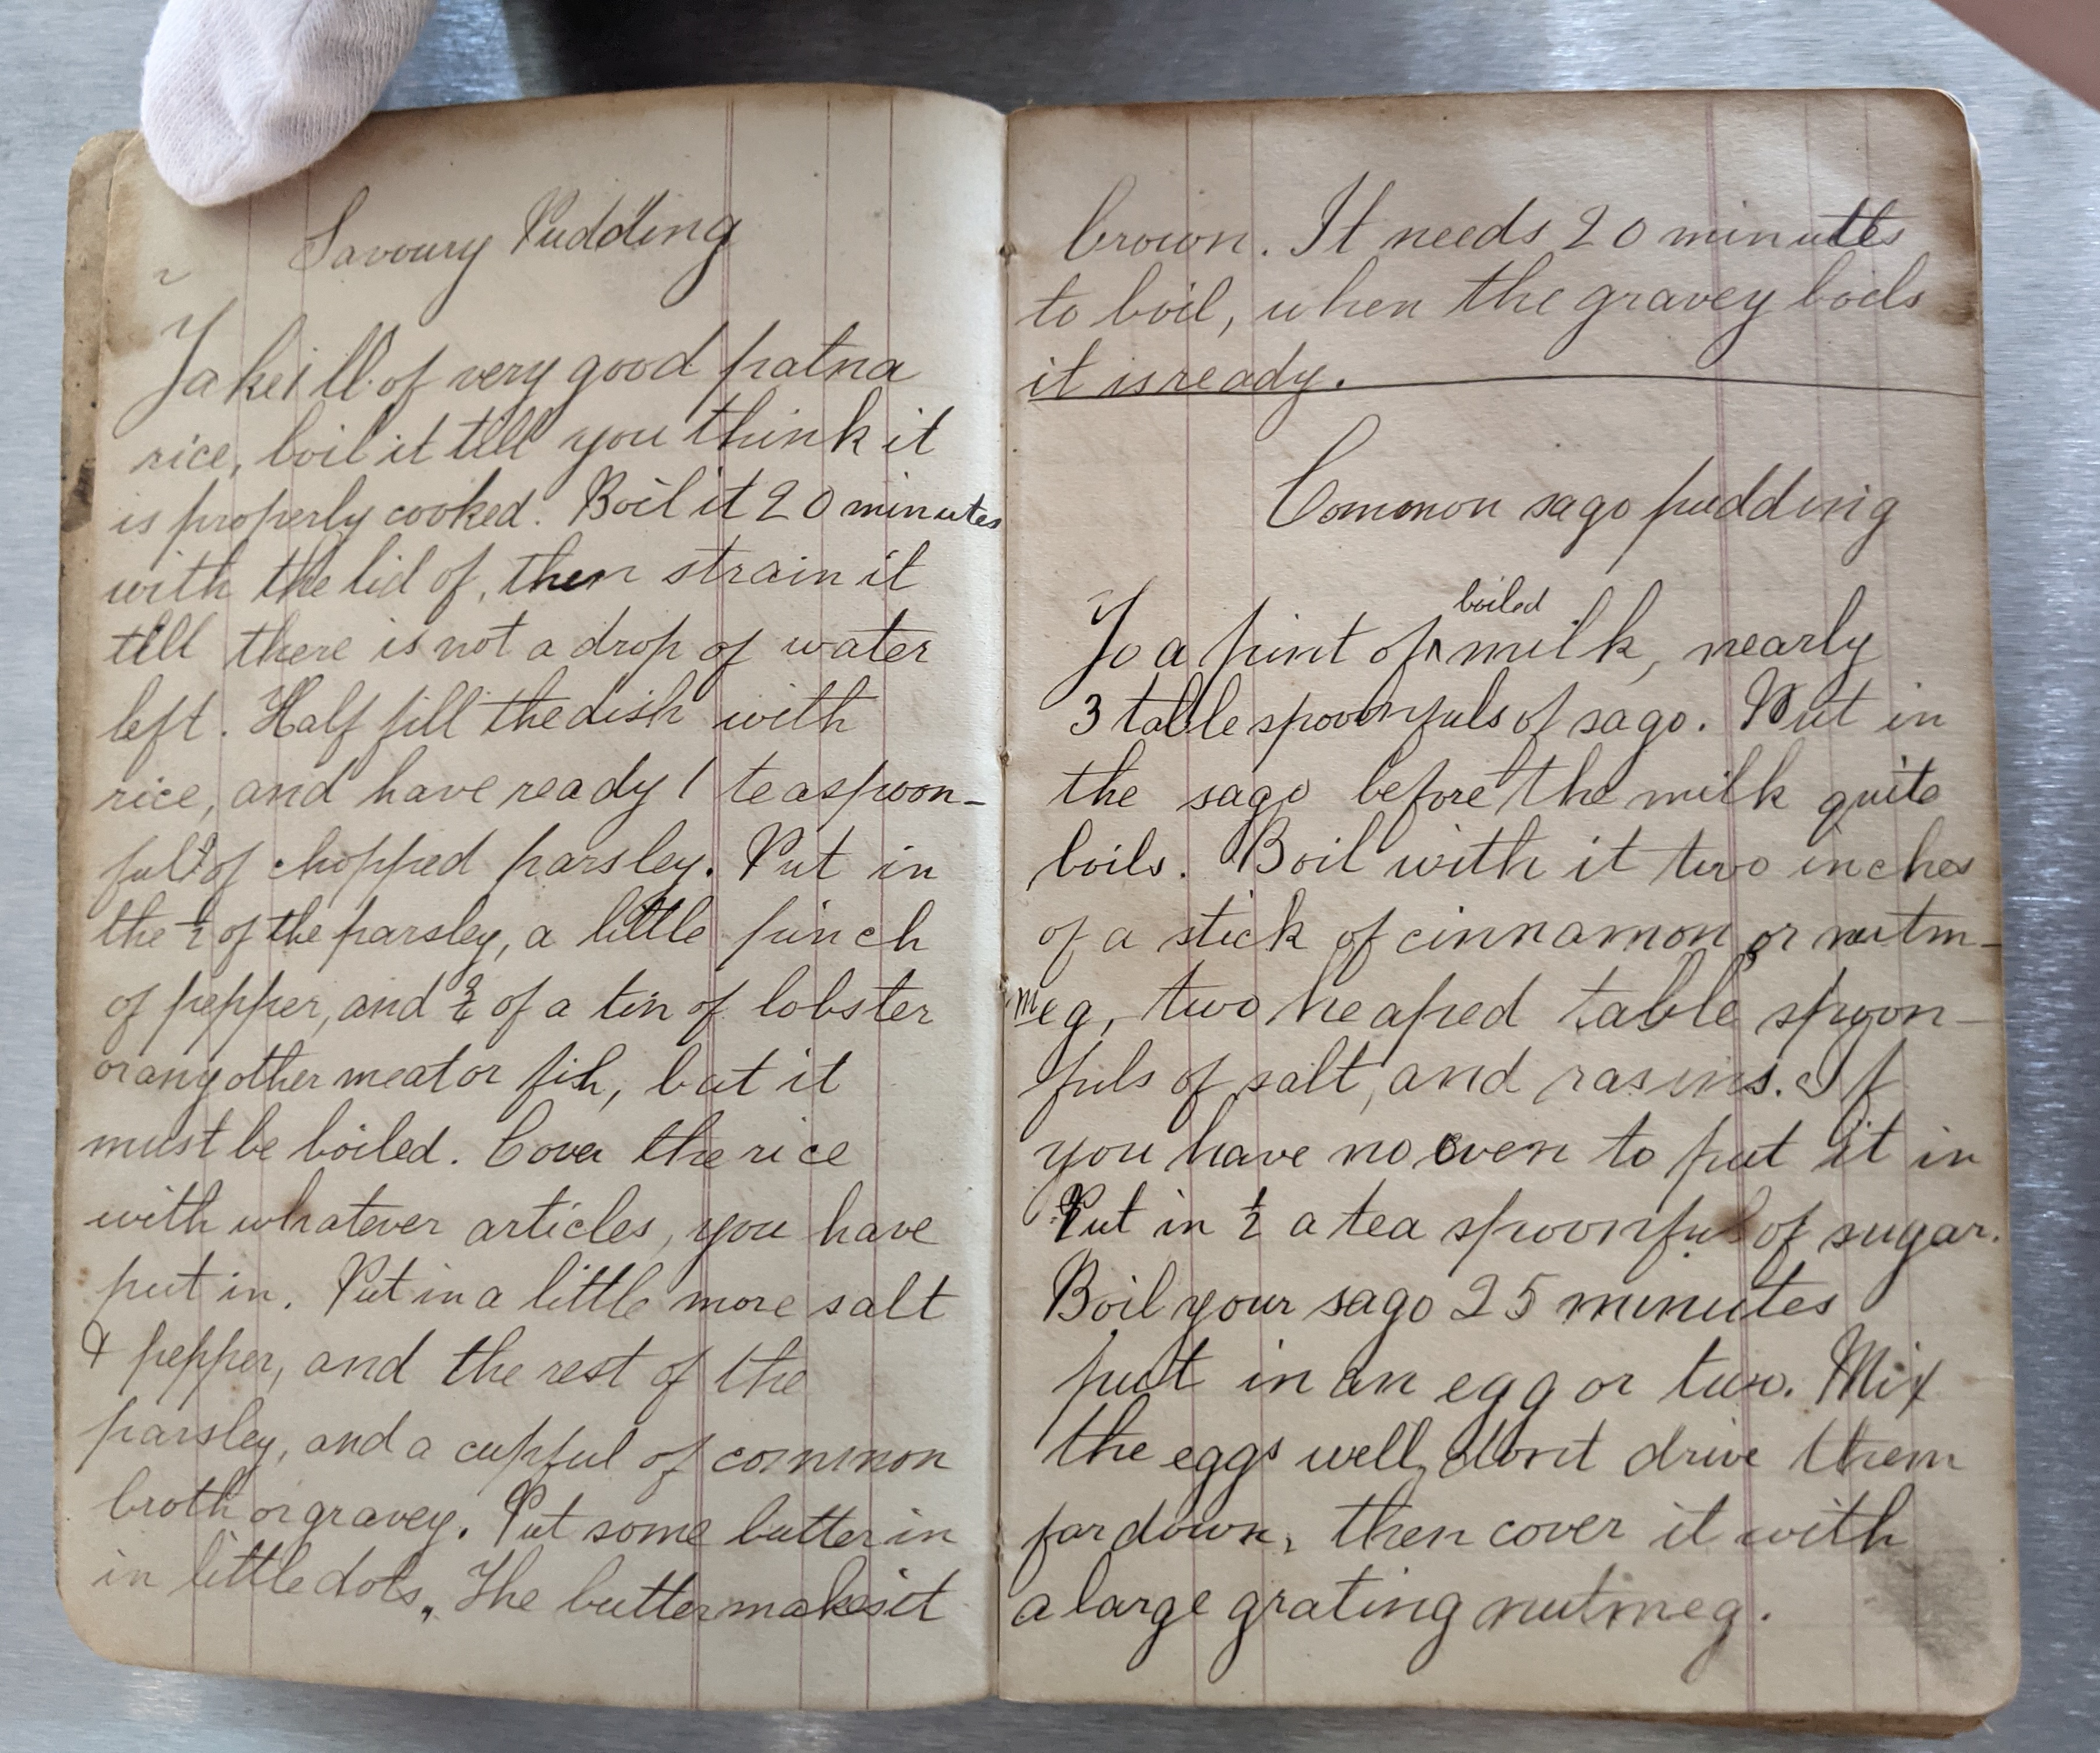 Savoury Pudding
Take 1 ll. of very good patna
rice, boil it till you think it
is properly cooked. Boil it 20 minutes
with the lid of, then strain it
till there is not a drop of water
left. Half fill the dish with
rice, and have ready 1 teaspoon-
full of chopped parsley. Put in
the ½ of the parsley, a little pinch
of pepper, and of a tin of lobster
or any other meat or fish, but it
must be boiled. Cover the rice
with whatever articles, you have
put in. Put in a little more salt
& pepper, and the rest of the
parsley, and a cupful of common
broth or gravey. Put some butter in
in little dots. The butter makes it
brown. It needs 20 minutes
to boil, when the gravey boils
it is ready.
Common sago pudding
boiled
To a pint of ^ milk, nearly
3 table spoonfuls of sago. Put in
the sago before the milk quite
boils. Boil with it two inches
of a stick of cinnamon or nutm-
meg, two heaped table spoon-
fuls of salt, and rasins. If
you have no oven to put it in
Put in ½ a tea spoonful of sugar.
Boil your sago 25 minutes
put in an egg or two. Mix
the eggs well, dont drive them
far down, then cover it with
a large grating nutmeg.